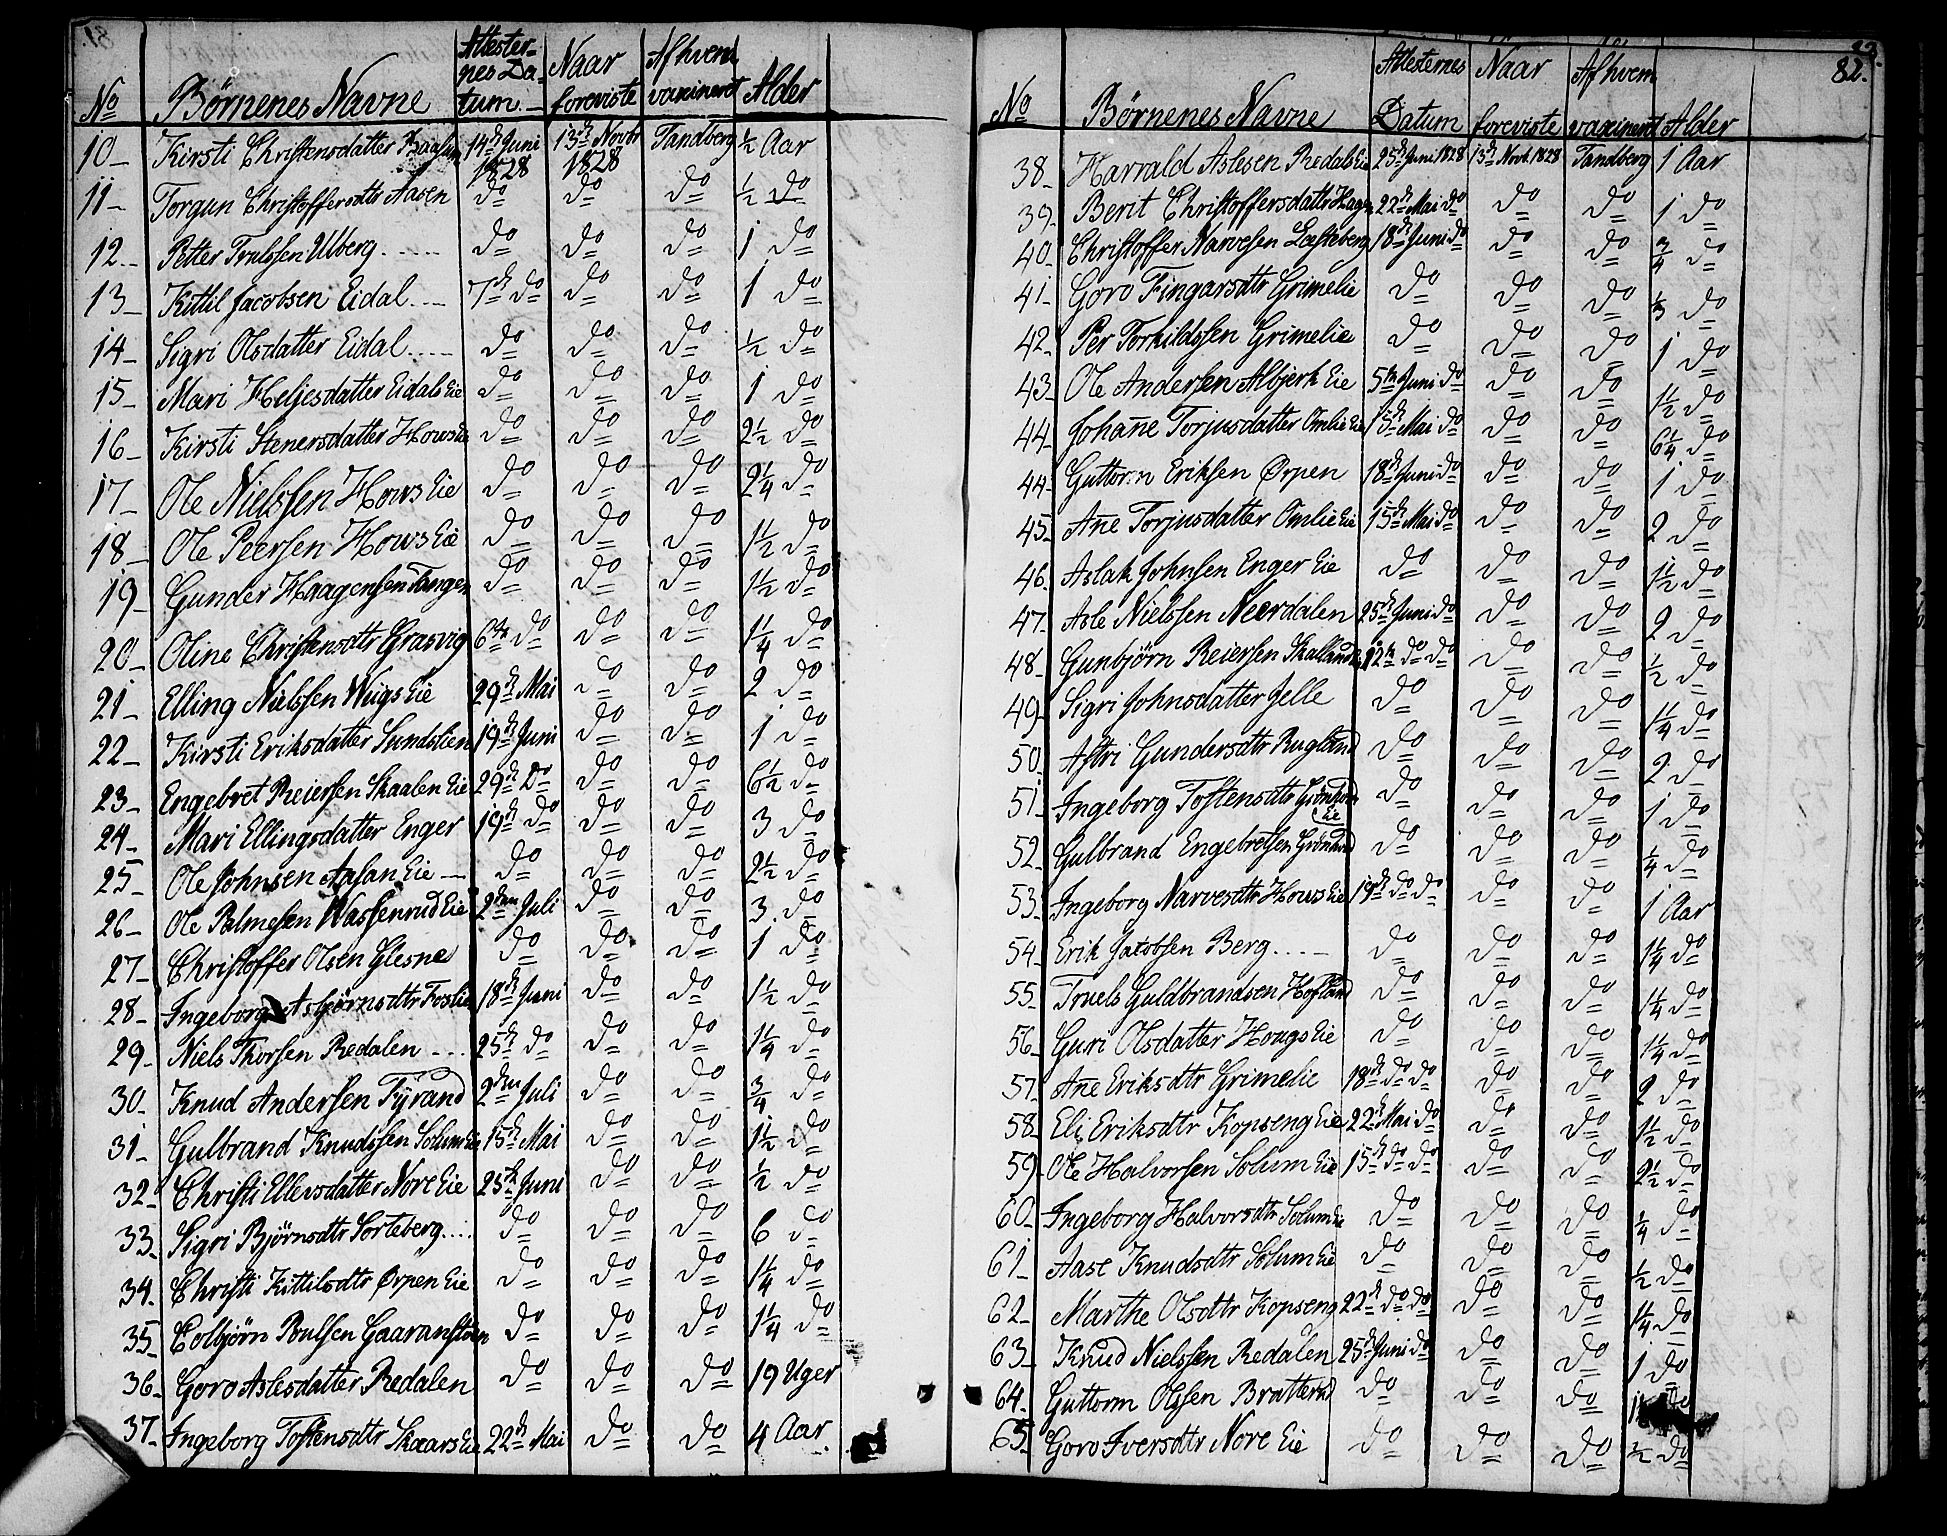 No Børnenes Navne Attester-nes Datum Naar foreviste Af hvem vaxineret Alder
10 Kirsti Christensdatter 14de Juni 1828 13de Novbr 1828 Tandberg ½ Aar
11 Torgun Christoffersdtr Aasen do do do ½ do
12 Petter Trulssen Ulberg do do do 1 do
13 Kittil Jacobsen Eidal 7de do do do 1 do
14 Sigri Olsdatter Eidal do do do ½ do
15 Mari Heljesdatter Eidals Eie do do do 1 do
16 Kirsti Stenersdatter Hows Eie do do do 2½ do
17 Ole Nielssen Hows Eie do do do 2¼ do
18 Ole Peersen Hows Eie do do do 1½ do
19 Gunder Haagensen Tangen do do do 1½ do
20 Oline Christensdtr Grasvig 6te do do do 1¼ do
21 Elling Nielssen Wiigs Eie 29de Mai do do 2 do
22 Kirsti Eriksdatter Sundstien 19de Juni do do 1 do
23 Engebret Reiersen Skaalen Eie 29de Do do do 6½ do
24 Mari Ellingsdatter Enger 19de do do do 3 do
25 Ole Johnsen Aasan Eie do do do 2½ do
26 Ole Palmesen Wassenrud Eie 2den Juli do do 3 do
27 Christoffer Olsen Glesne do do do 1 do
28 Ingeborg Asbjørnsdtr Foslie 18de Juni do do 1½ do
29 Niels Thorsen Redalen 25de do do do 1¼ do
30 Knud Andersen Tyrand 2den Juli do do ¾ do
31 Gulbrand Knudssen Solum Eie 15de Mai do do 1½ do
32 Christi Ellevsdatter Nore Eie 25de Juni do do ½ do
33 Sigri Bjørnsdtr Sorteberg do do do 6 do
34 Christi Kittilsdtr Ørpen Eie do do do 1¼ do
35 Colbjørn Poulsen do do do 1¼ do
36 Goro Aslesdatter Redalen do do do 19 Uger
37 Ingeborg Tostensdtr Skaars Eie 22de Mai do do 4 Aar
82.
No Børnenes Navne Attesternes Datum Naar foreviste Af hvem vaxineret Alder
38 Harrald Aslesen Redals Eie 25de Juni 1828 13de Novb. 1828 Tandberg 1 Aar
39 Berit Christoffersdattr Hagen 22de Mai do do do 1 do
40 Christoffer Narvesen Lesteberg 18de Juni do do do ¾ do
41 Goro Fingarsdtr Grimelie do do do ⅓ do
42 Per Torkildssen Grimelie do do do 1 do
43 Ole Andersen Albjerk Eie 5te Juni do do do 1½ do
44 Johan̄e Torjusdatter Omlie Eie 15de Mai do do do 6¼ do
44 Guttorm Eriksen Ørpen 18de Juni do do do 1 do
45 An̄e Torjusdatter Omlie Eie 15de Mai do do do 2 do
46 Aslak Johnsen Enger Eie do do do 1½ do
47 Asle Nielssen Neerdalen 25de Juni do do do 2 do
48 Gunbjørn Reiersen 12te do do do do ½ do
49 Sigri Johnsdatter Jelle do do do 1¼ do
50 Astri Gundersdtr Rugland do do do 2 do
51 Ingeborg Tostensdtr Grønhovd Eie do do do 1 do
52 Gulbrand Engebretsen do do do ¼ do
53 Ingeborg Narvesdtr Hows Eie 19de do do do do 1 Aar
54 Erik Jacobsen Berg do do do 1¼ do
55 Truels Guldbrandsen Hofland do do do 1¼ do
56 Guri Olsdatter Hougs Eie do do do 1¼ do
57 An̄e Eriksdtr Grimelie 18de do do do do 2 do
58 Eli Eriksdtr Kopseng Eie 22de Mai do do do 1½ do
59 Ole Halvorsen Solum Eie 15de do do do do 2½ do
60 Ingeborg Halvorsdtr Solum Eie do do do ¼ do
61 Aase Knudsdtr Solum Eie do do do ½ do
62 Marthe Olsdtr Kopseng 22de do do do do 1¼ do
63 Knud Nielssen Redalen 25de Juni do do do 1 do
64 Guttorm Olssen Bratterud do do do
65 Goro Iversdtr Nore Eie do do do ½ do